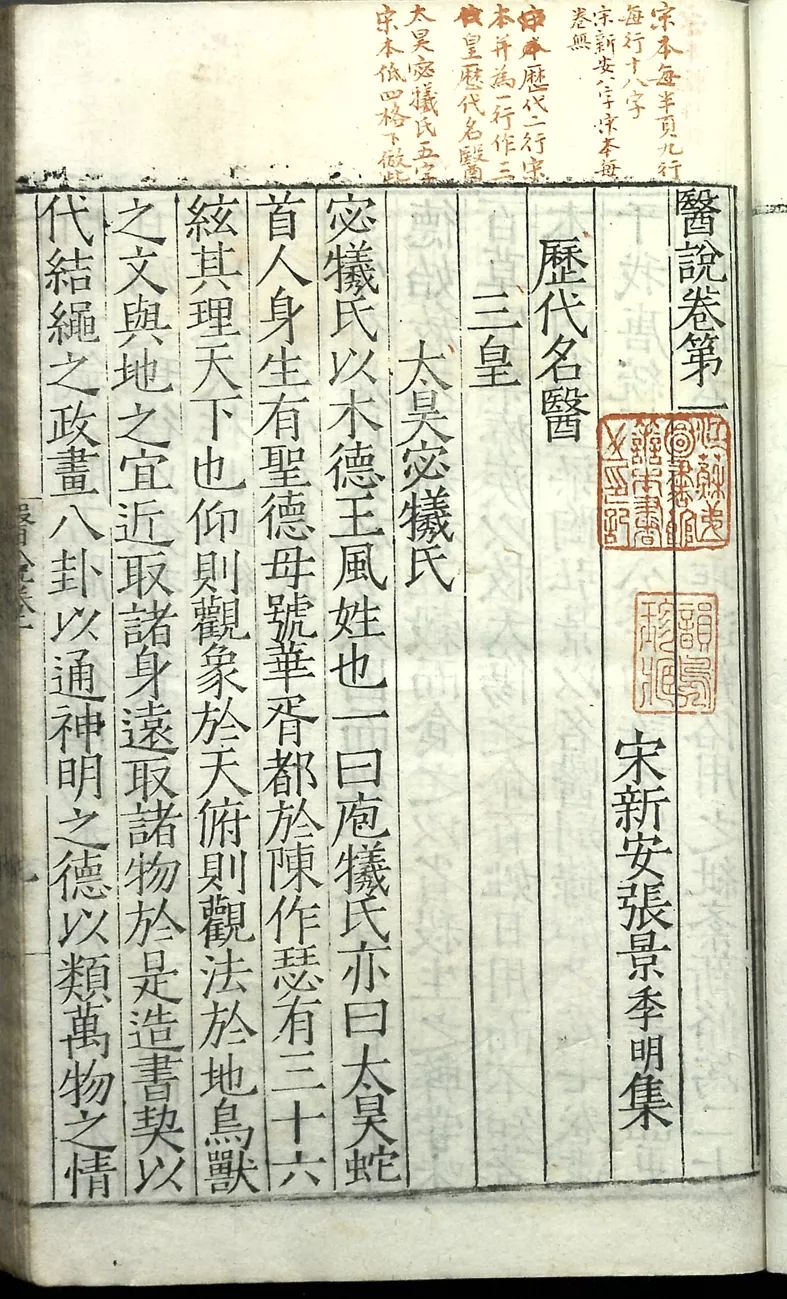 宋本每半頁九行
每行十八字
宋新安八字宋本每
卷無
歷代二行宋
本并為一行作三
皇歷代名醫
太昊宓犧氏五字
宋本低四格下倣此
醫說卷第一
江蘇第
圖書館
善本書
之印記
宋新安張景季明集
歷代名醫
三皇
太昊宓犧氏
宓犧氏以木德王風姓也一曰庖犧氏亦曰太昊蛇
首人身生有聖德母號華胥都於陳作瑟有三十六
絃其理天下也仰則觀象於天俯則觀法於地鳥獸
之文與地之宜近取諸身遠取諸物於是造書契以
代結繩之政畫八卦以通神明之德以類萬物之情